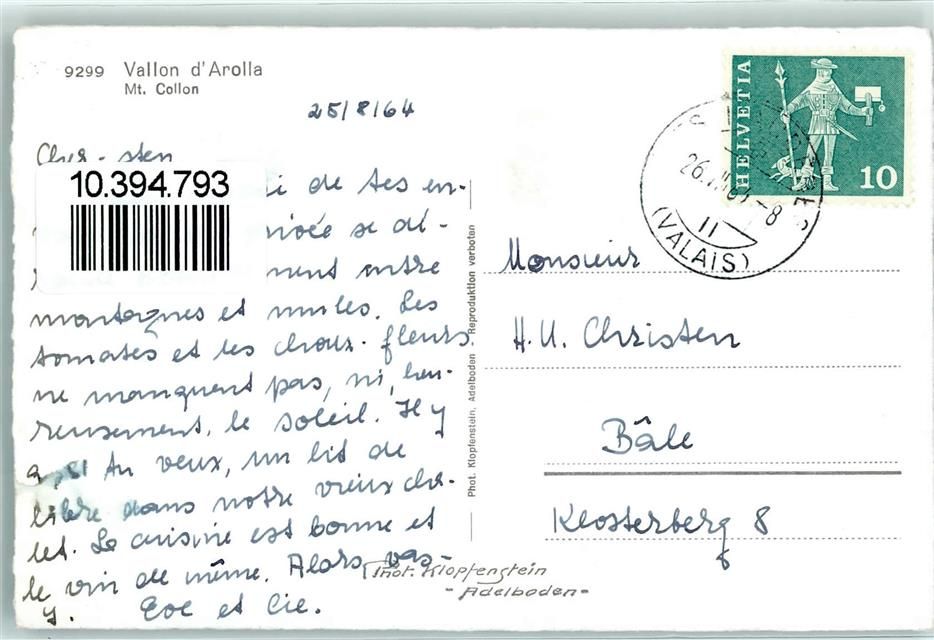 9299 Vallon d'Arolla
Mt. Collon
25/8/64
Cher-sten
10.394.793
de tes en-
se dé-
nent entre
montagnes et mules. Les
tomates et les choux-fleurs
ne manquent pas, ni, heu-
reusement, le soleil. Il y
a, si tu veux, un lit de
libre dans notre vieux cha-
let. La cuisine est bonne et
le vin de même. Alors, vas-
y. Eve et Cie.
Phot. Klopfenstein
- Adelboden -
Phot. Klopfenstein, Adelboden Reproduktion verboten
HELVETIA
10
26.
-8
11
(VALAIS)
Monsieur
H.U. Christen
Bâle
Klosterberg 8